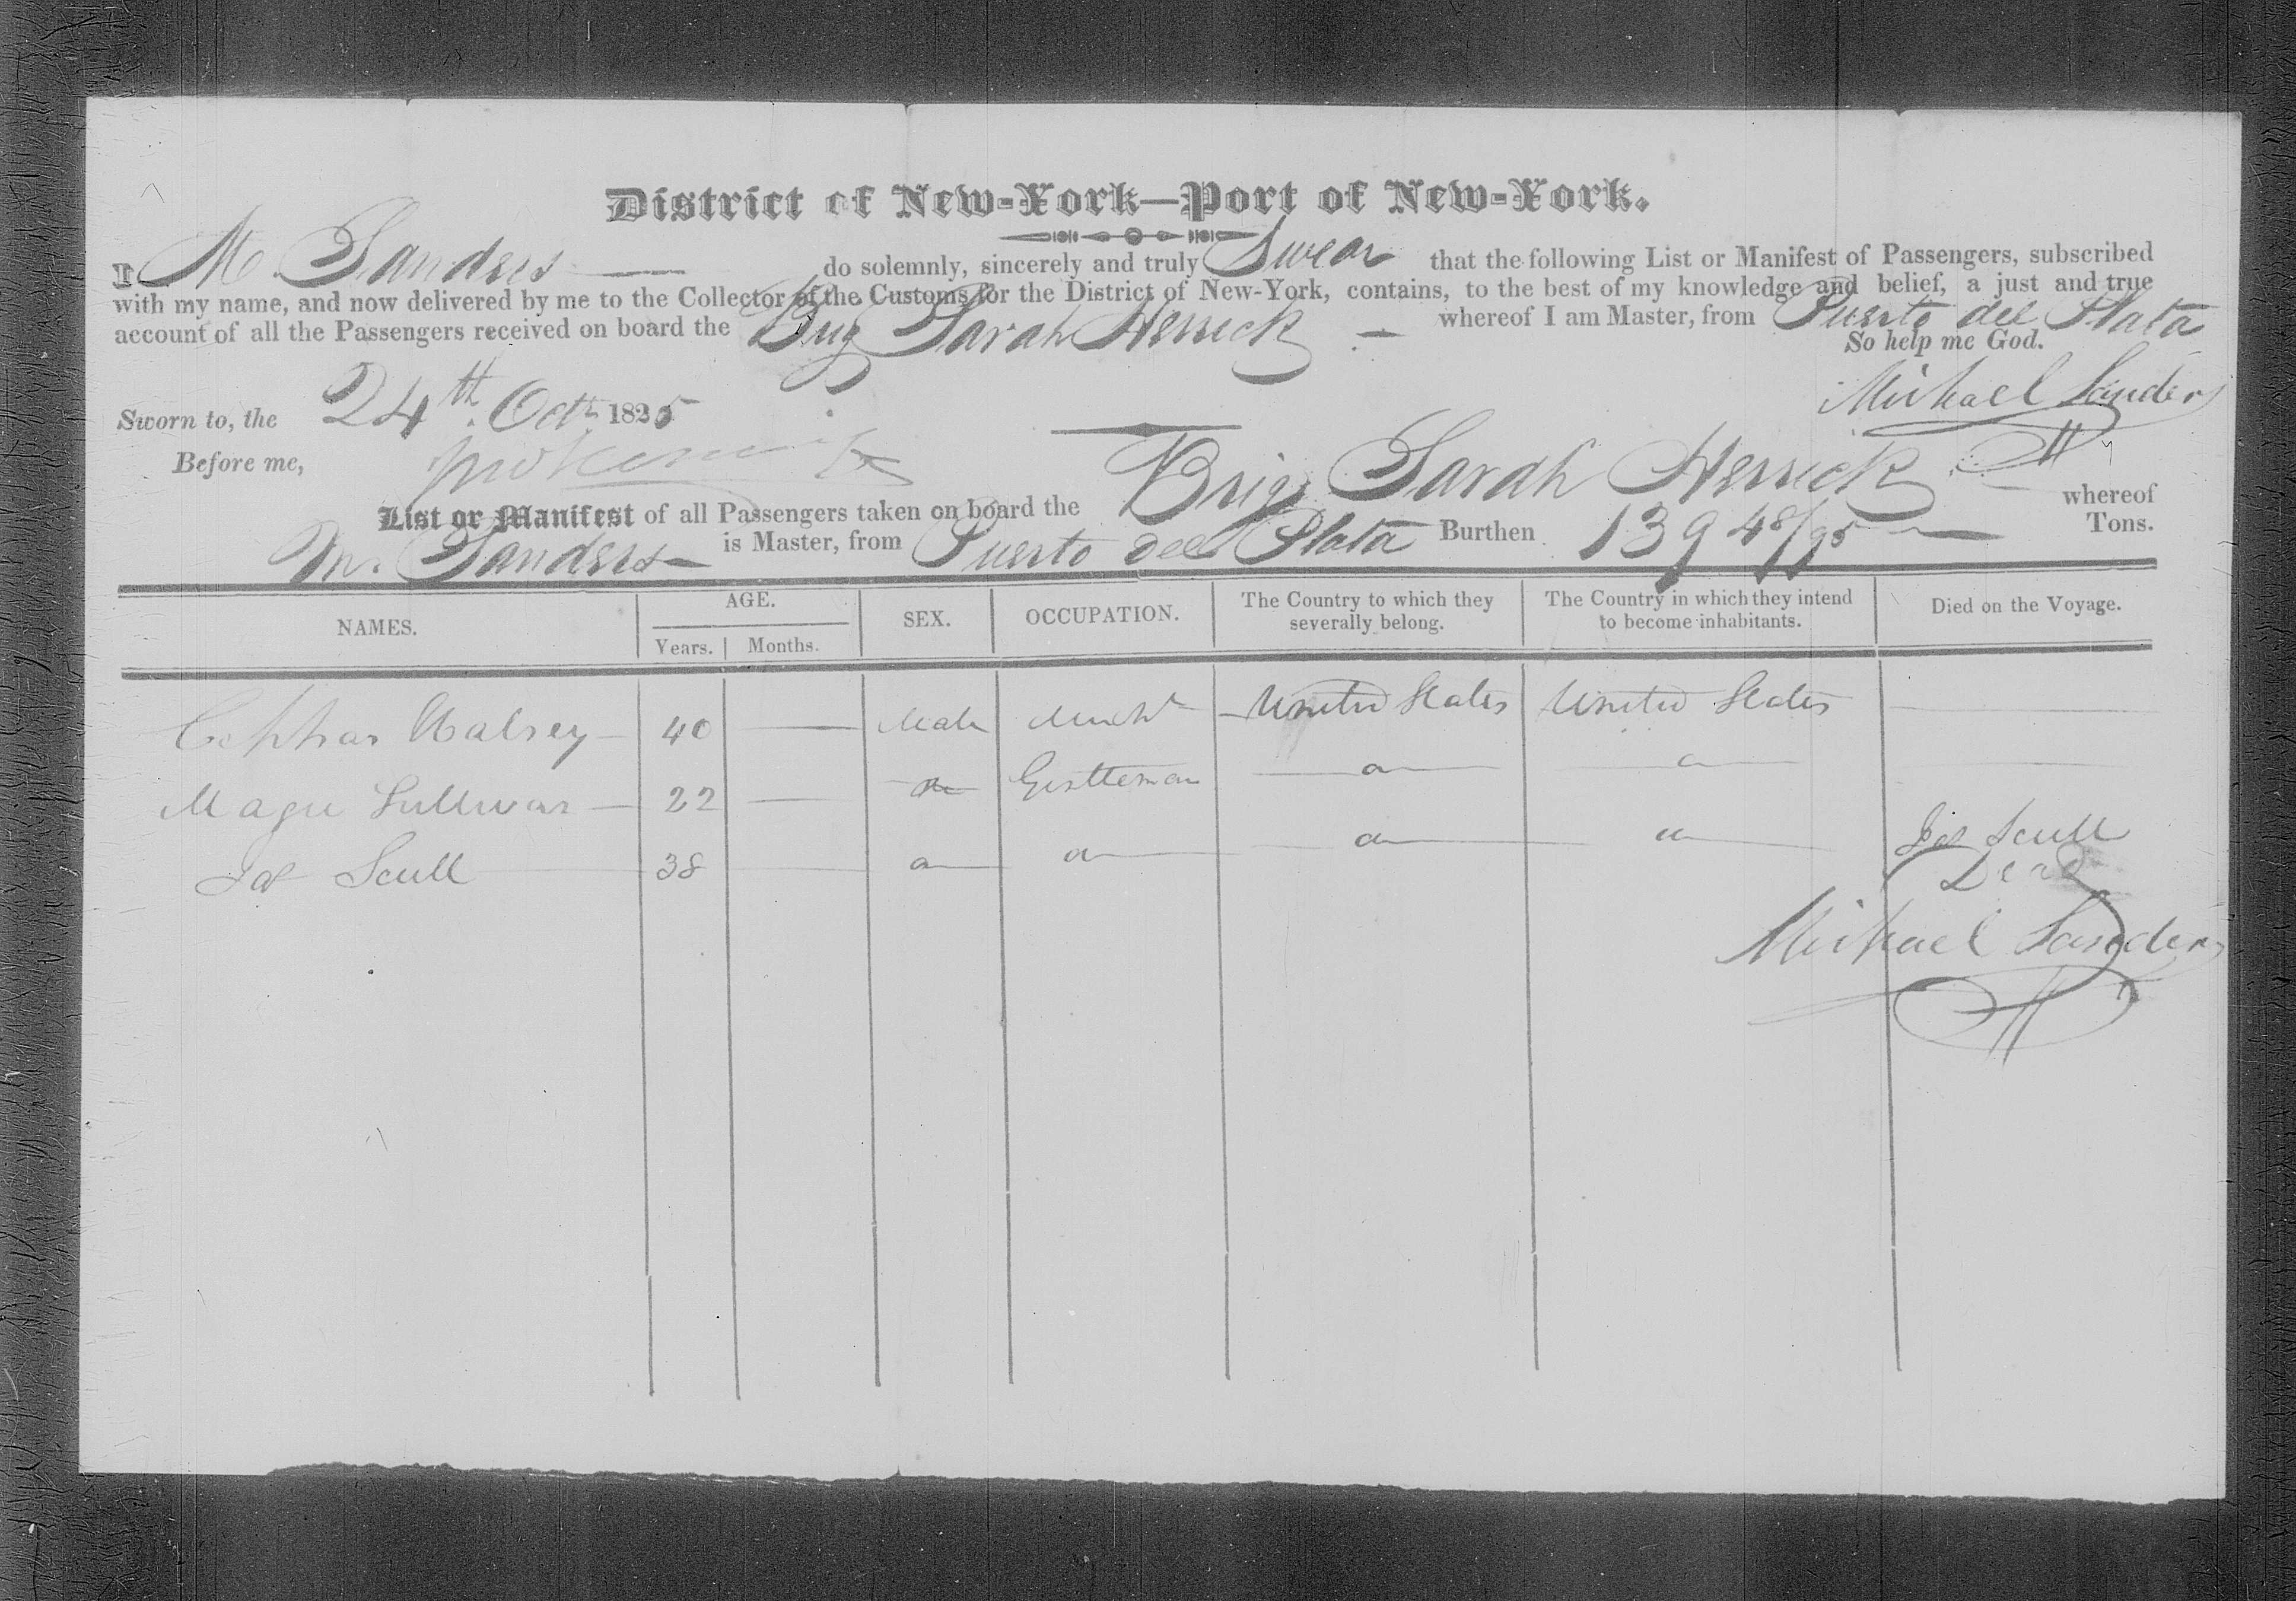 District of New-York—Port of New-York.
I M. Sanders do solemnly, sincerely and truly Swear that the following List or Manifest of Passengers, subscribed
with my name, and now delivered by me to the Collector of the Customs for the District of New-York, contains, to the best of my knowledge and belief, a just and true
account of all the Passengers received on board the Brig Sarah Herrick whereof I am Master, from Puerto del Plata
So help me God.
Sworn to, the 24th Oct. 1825 Michael Sanders
Before me,
List or Manifest of all Passengers taken on board the Brig Sarah Herrick whereof
M. Sanders is Master, from Puerto del Plata Burthen 139 48/95 Tons.
NAMES. AGE. SEX. OCCUPATION. The Country to which they severally belong. The Country in which they intend to become inhabitants. Died on the Voyage.
Years. Months.
Cephas Halsey — 40 — Male Mercht — United States United States —
Sullivan — 22 — Gentleman
Jas Scull 38 Jas Scull
Dead
Michael Sanders